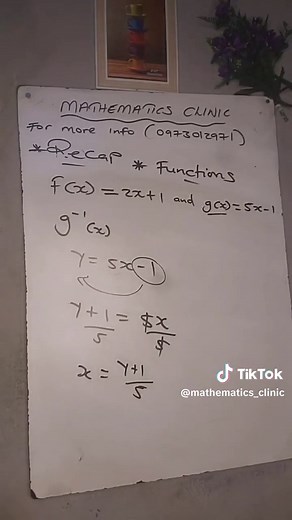 MATHEMATICS CLINIC
For more info (0973012971)
*Recap * Functions
f(x) = 2x+1 and g(x) = 5x-1
g⁻¹(x)
y = 5x-1
y+1/5 = 5x/5
x = y+1/5
TikTok
@mathematics_clinic